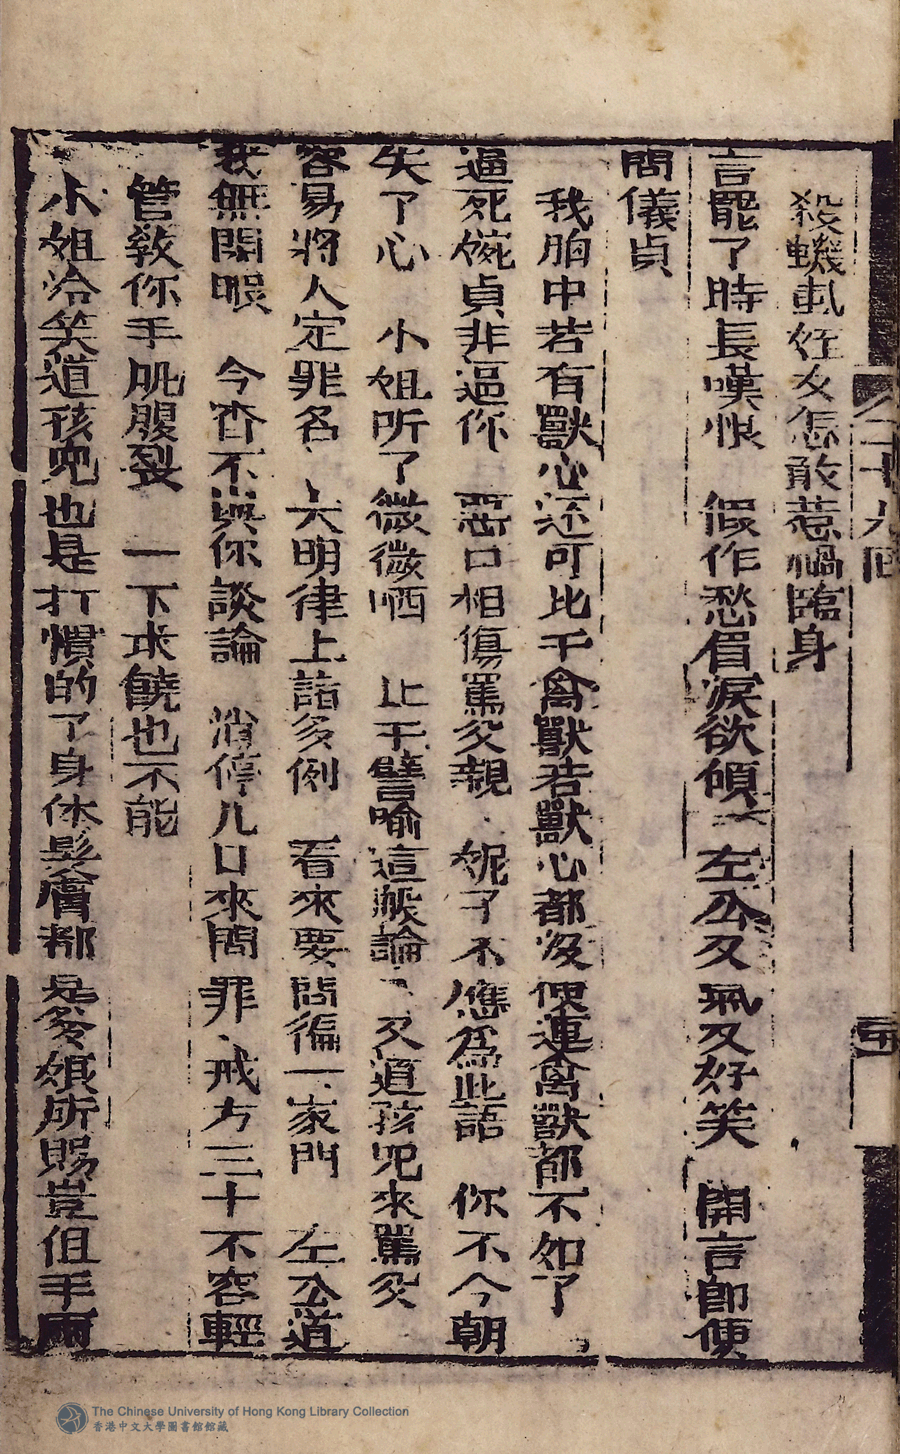 二十九回
殺蟣虱姪女怎敢惹禍臨身
言罷了時長嘆恨 假作愁眉淚欲傾 左公又氣又好笑 開言即便
問儀貞
我胸中若有獸心还可比于禽獸若獸心都沒便連禽獸都不如了
逼死婉貞非逼你 惡口相傷罵父親 妮子不應爲此語 你不今朝
失了心 小姐听了微微哂 止于譬喻這般論 又道孩兒來罵父
容易將人定罪名 大明律上諸多例 看來要問徧一家門 左公道
我無閑暇 今宵不與你談論 消停几日來問罪 戒方三十不容輕
管敎你手肌腹裂 一下求饒也不能
小姐冷笑道孩兒也是打慣的了身体髮膚都是爹娘所賜豈但手兩
The Chinese University of Hong Kong Library Collection
香港中文大學圖書館館藏